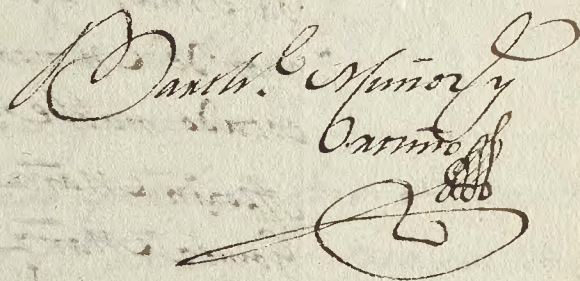 Barth.^e Muñoz y
Ortuño